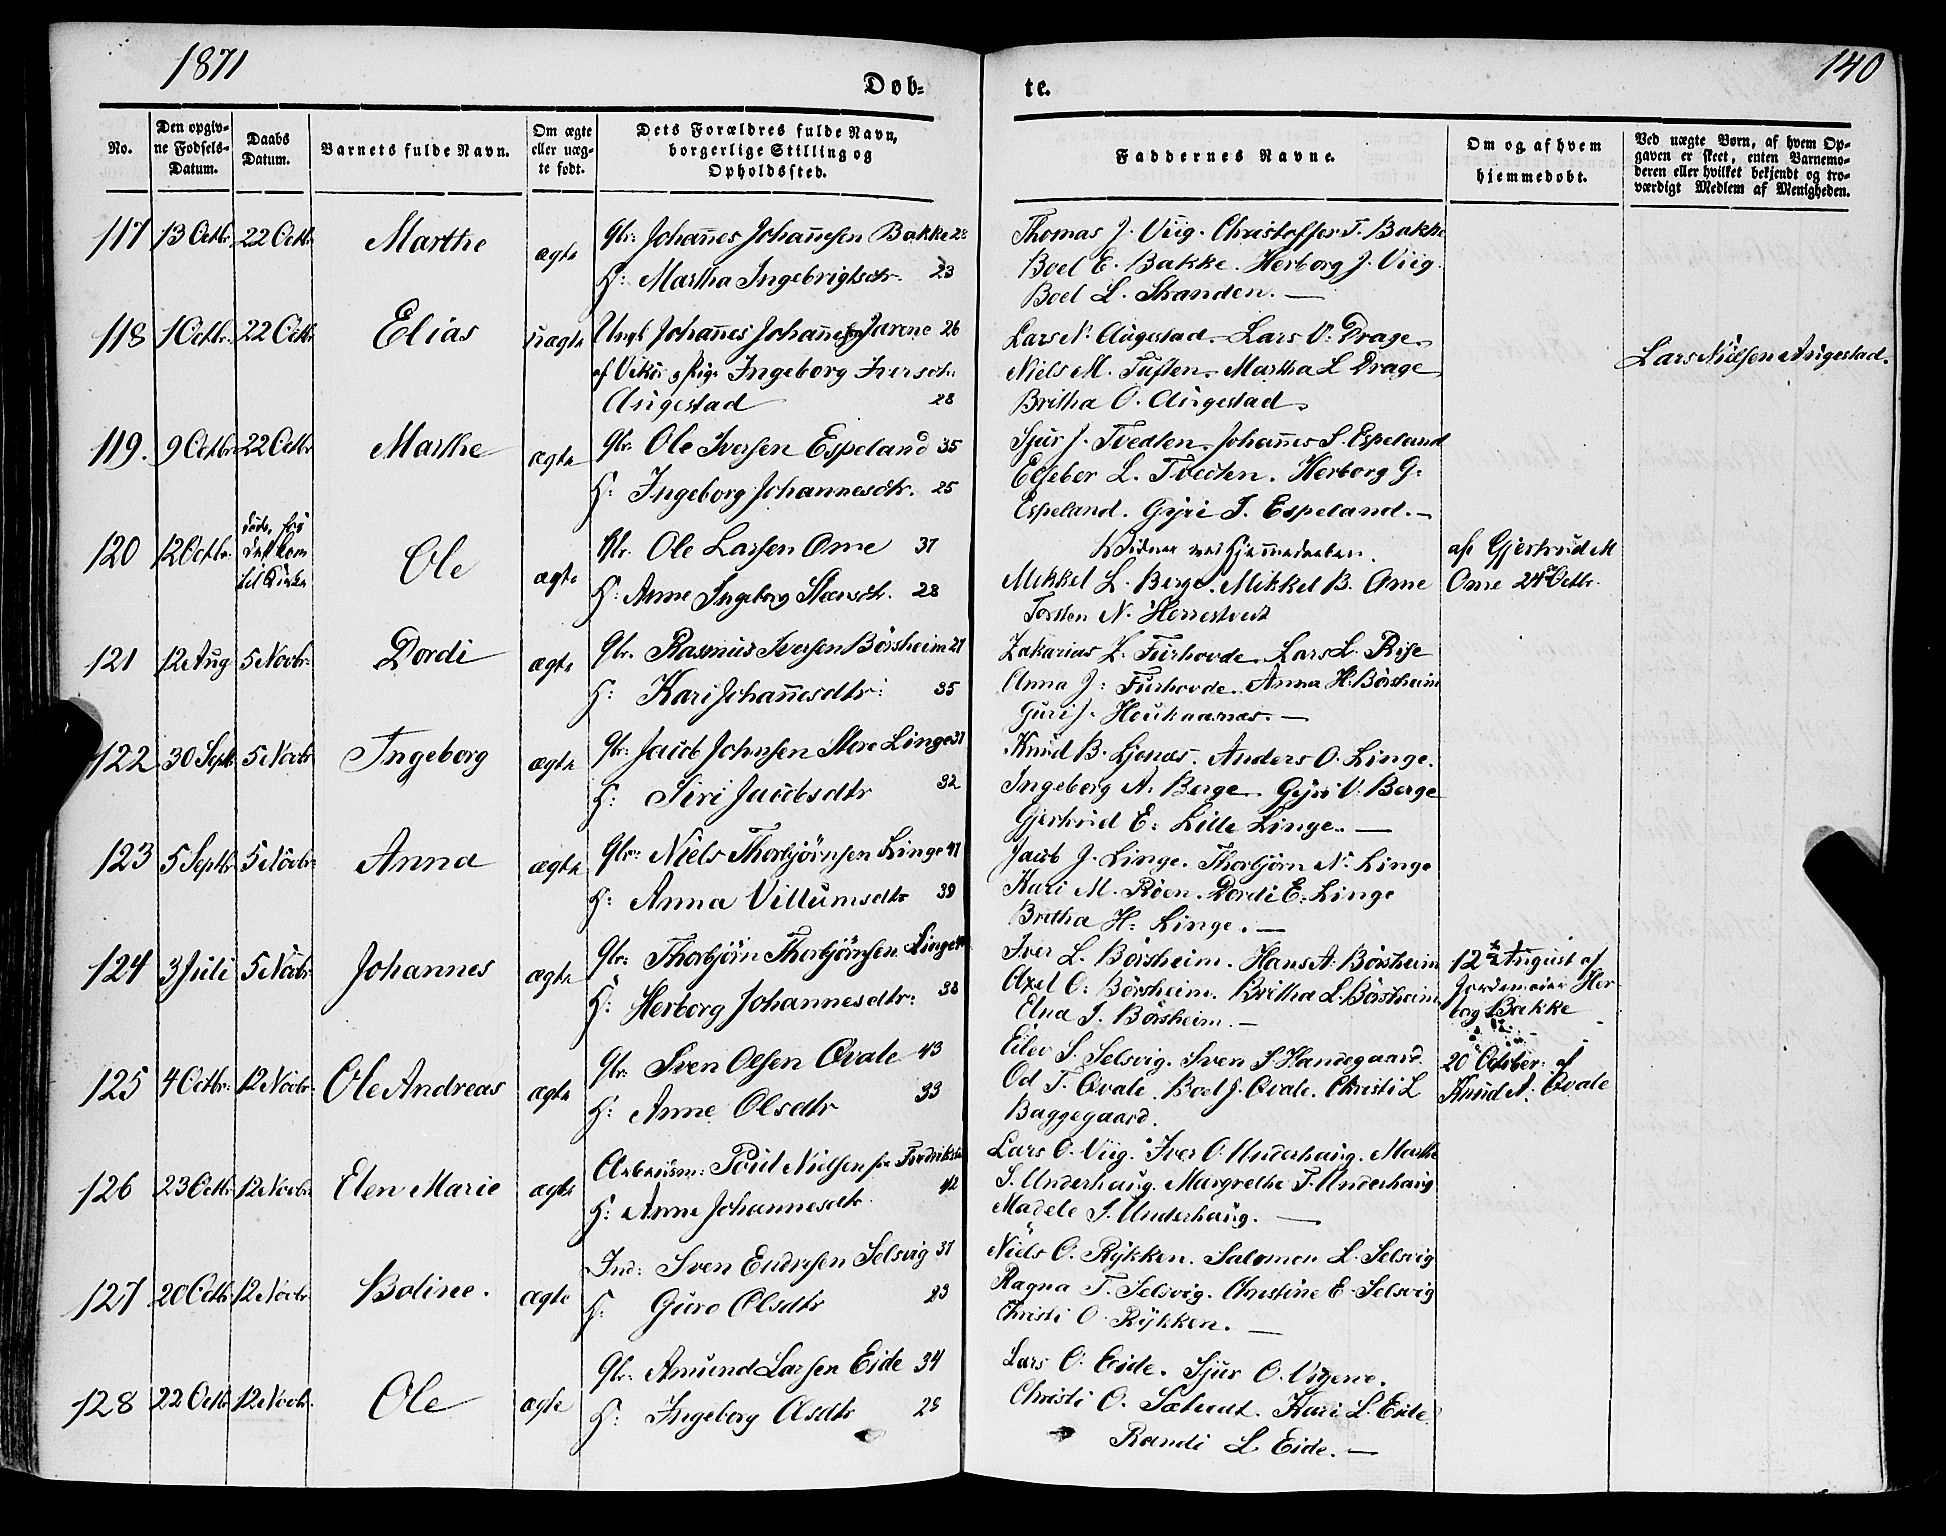 1871
140
Døb=
te.
No.
Den opgiv=
ne Fødsels=
Datum.
Daabs
Datum.
Barnets fulde Navn.
Om ægte
eller uæg=
te født.
Dets Forældres fulde Navn,
borgerlige Stilling og
Opholdssted.
Faddernes Navne.
Om og af hvem
hjemmedøbt.
Ved uægte Børn, af hvem Op=
gaven er skeet, enten Barnemo=
deren eller hvilket bekjendt og tro=
værdigt Medlem af Menigheden.
117 13 Octbr. 22 Octbr. Marthe ægte Gbr: Johannes Johannesen Bakke 28
H: Martha Ingebrigtsdtr. 23
Thomas J. Viig. Christoffer T. Bakke
Boel E. Bakke. Herborg J. Viig.
Boel L. Stranden. —
118 1 Octbr. 22 Octbr Elias uægte Ungk Johannes Johannesen Jarene 26
af Vikør & Pige Ingeborg Iversdtr.
Augestad 28
Lars N. Augestad. Lars V. Drage.
Niels M. Tuften. Martha L Drage,
Britha O. Augestad.
Lars Nielsen Augestad.
119. 9 Octbr. 22 Octbr Marthe ægte Gbr. Ole Iversen Espeland 35
H: Ingeborg Johannesdtr. 25
Sjur J. Tvedten. Johannes S. Espeland
Elseber L. Tvedten. Herborg G.
Espeland. Gyri I. Espeland. —
120 12 Octbr. døde, før
det kom
til Kirke Ole ægte Gbr. Ole Larsen Ome 37
H: Anne Ingeborg Steensdtr. 28
Vidner ved Hjemmedaaben.
Mikkel L. Berge. Mikkel B. Ome
Torsten N. Herrestvedt
af Gjertrud M
Ome 24 Octbr.
121 12 Aug 5 Novbr. Dordi ægte Gbr. Rasmus Iversen Børsheim 27
H: Kari Johannesdtr: 35
Zakarias L. Furhovde. Lars L. Rise
Anna J: Furhovde. Anna H. Børsheim
Guri J. Houkaanæs. —
122 30 Septb. 5 Novbr. Ingeborg ægte Gbr: Jacob Johnsen Store Linge 37
H: Siri Jacobsdtr 32
Knud B. Ljonæs. Anders O. Linge.
Ingeborg A. Berge. Gyri V. Berge
Gjertrud E: Lille Linge. —
123 5 Septbr. 5 Novbr. Anna ægte Gbr: Niels Thorbjørnsen Linge 41
H: Anna Villumsdtr 39
Jacob J. Linge. Thorbjørn N. Linge
Kari M. Røen. Dordi E. Linge
Britha H: Linge. —
124 3 Juli 5 Novbr. Johannes ægte Gbr: Thorbjørn Thorbjørnsen Linge
H: Herborg Johannesdtr: 38
Iver L. Børsheim. Hans A. Børsheim
Axel O: Børsheim. Britha L. Børsheim
Elna I. Børsheim. —
12te August af
Jordemoder Her-
borg Bakke
125 4 Octbr: 12 Novbr. Ole Andreas ægte Gbr. Sven Olsen Qvale 43
H: Anne Olsdtr 33
Eilev S. Selsvig. Sven S Handegaard.
Od T. Qvale. Boel J. Qvale. Christi L
Baggegaard.
20 October. af
Knud A. Qvale
126 23 Octbr. 12 Novbr. Elen Marie ægte Arbeidsm: Poul Nielsen fra
H: Anne Johannesdtr. 42
Lars O. Viig. Iver O Underhaug. Marthe
S. Underhaug. Margrethe T. Underhaug
Madele S. Underhaug. —
127 20 Octbr. 12 Novbr. Boline. ægte Ind: Sven Endresen Selsvig 37
H: Guro Olsdtr 23
Niels O. Rykken. Salomon L. Selsvig
Ragna T. Selsvig. Christine E. Selsvig
Christi O. Rykken. —
128 22 Octbr. 12 Novbr. Ole ægte Gbr. Amund Larsen Eide 34
H: Ingeborg Olsdtr 28
Lars O. Eide. Sjur O. Vigene.
Christi O. Kari L. Eide
Randi L Eide. —